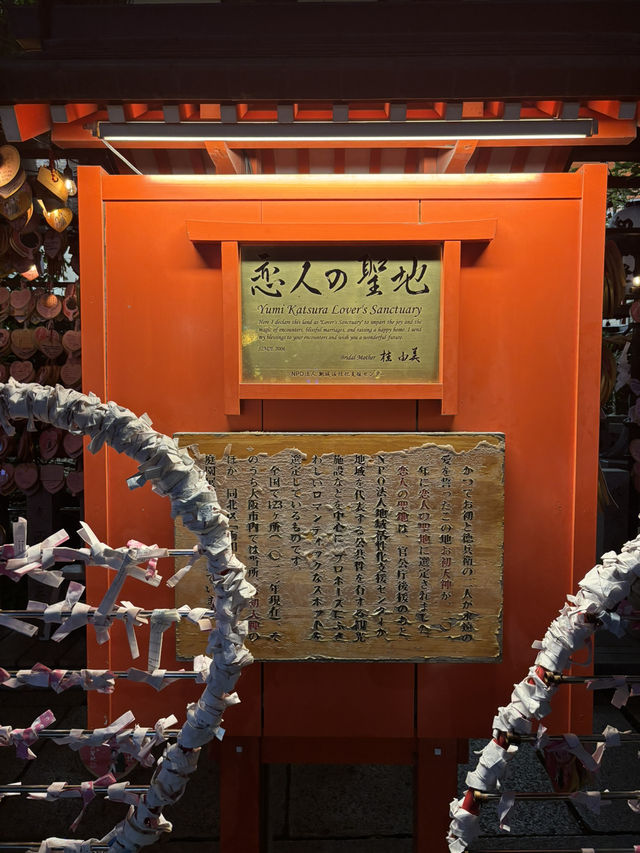 恋人の聖地
Yumi Katsura Lover's Sanctuary
Here I declare this land as "Lover's Sanctuary" to impart the joy and the
magic of encounters, blissful marriages, and raising a happy home. I send
my blessings to your encounters and wish you a wonderful future.
SINCE 2006
Bridal Mother 桂 由美
NPO法人 地域活性化支援センター
かつてお初と徳兵衛の二人が永遠の
愛を誓ったこの地お初天神が、二〇
年に恋人の聖地に選定されました。
恋人の聖地は、官公庁後援のもと
NPO法人地域活性化支援センターが、
地域を代表する公共性を有する観光
施設などを中心に「プロポーズにふさ
わしいロマンティックなスポット」を
選定しているものです。
全国で123ヶ所
のうち大阪市内では当所、お初天神の
ほか、同北区
庭園